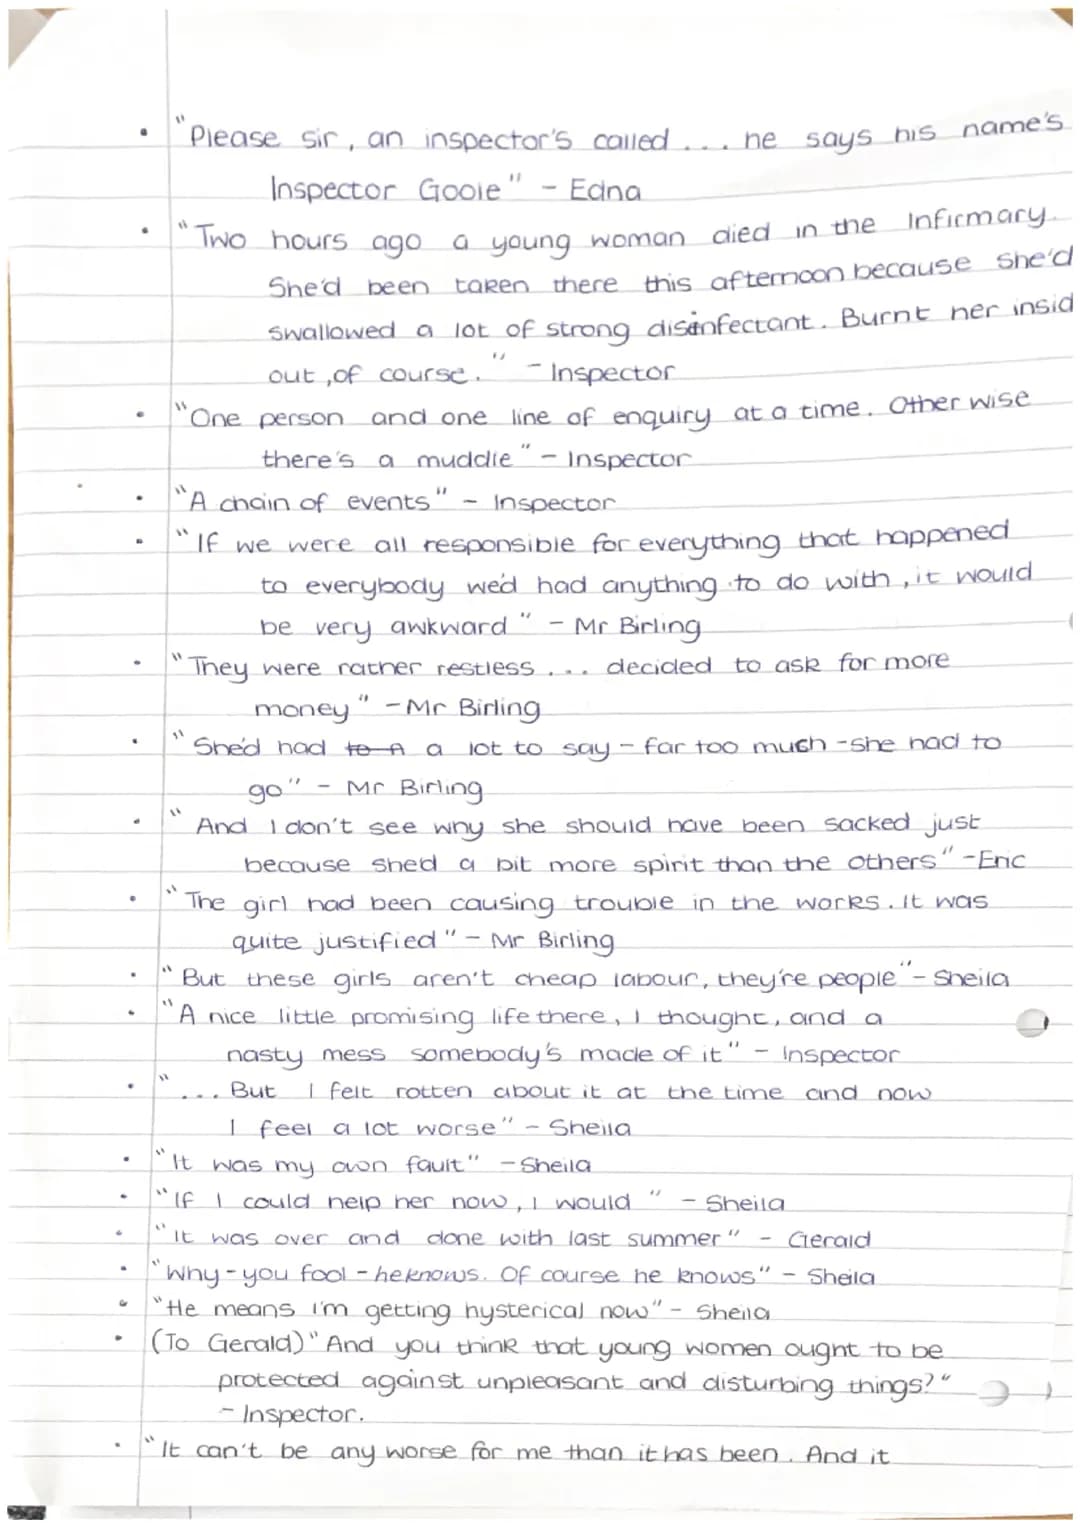 • "Please sir, an inspector's called ... he says his name's
Inspector Goole" - Edna
• "Two hours ago a young woman died in the Infirmary.
She'd been taken there this afternoon because she'd
swallowed a lot of strong disinfectant. Burnt her insid
out, of course." - Inspector
• "One person and one line of enquiry at a time. Other wise
there's a muddle" - Inspector
• "A chain of events" - Inspector
• "If we were all responsible for everything that happened
to everybody we'd had anything to do with, it would
be very awkward" - Mr Birling
• "They were rather restless ... decided to ask for more
money" - Mr Birling
• "She'd had to A a lot to say - far too much - she had to
go" - Mr Birling
• "And I don't see why she should have been sacked just
because she'd a bit more spirit than the others" - Eric
• "The girl had been causing trouble in the works. It was
quite justified" - Mr Birling
• "But these girls aren't cheap labour, they're people" - Sheila
• "A nice little promising life there, I thought, and a
nasty mess somebody's made of it" - Inspector
• "... But I felt rotten about it at the time and now
I feel a lot worse" - Sheila
• "It was my own fault" - Sheila
• "If I could help her now, I would" - Sheila
• "It was over and done with last summer" - Gerald
• "Why - you fool - he knows. Of course he knows" - Sheila
• "He means I'm getting hysterical now" - Sheila
• (To Gerald) "And you think that young women ought to be
protected against unpleasant and disturbing things?"
- Inspector.
• "It can't be any worse for me than it has been. And it